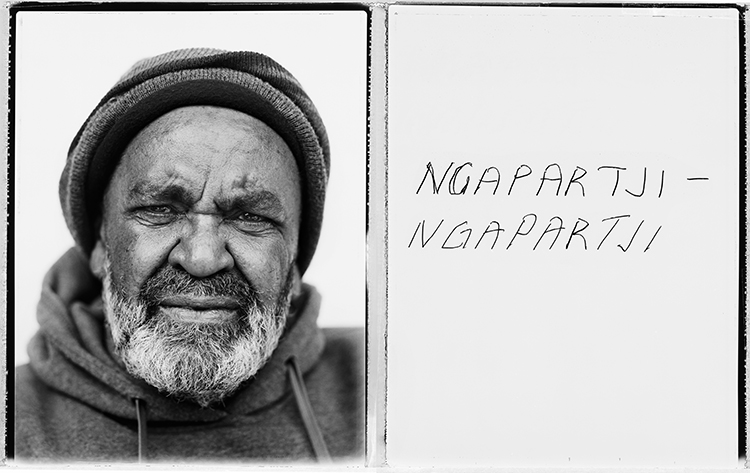 NGAPARTJI -
NGAPARTJI